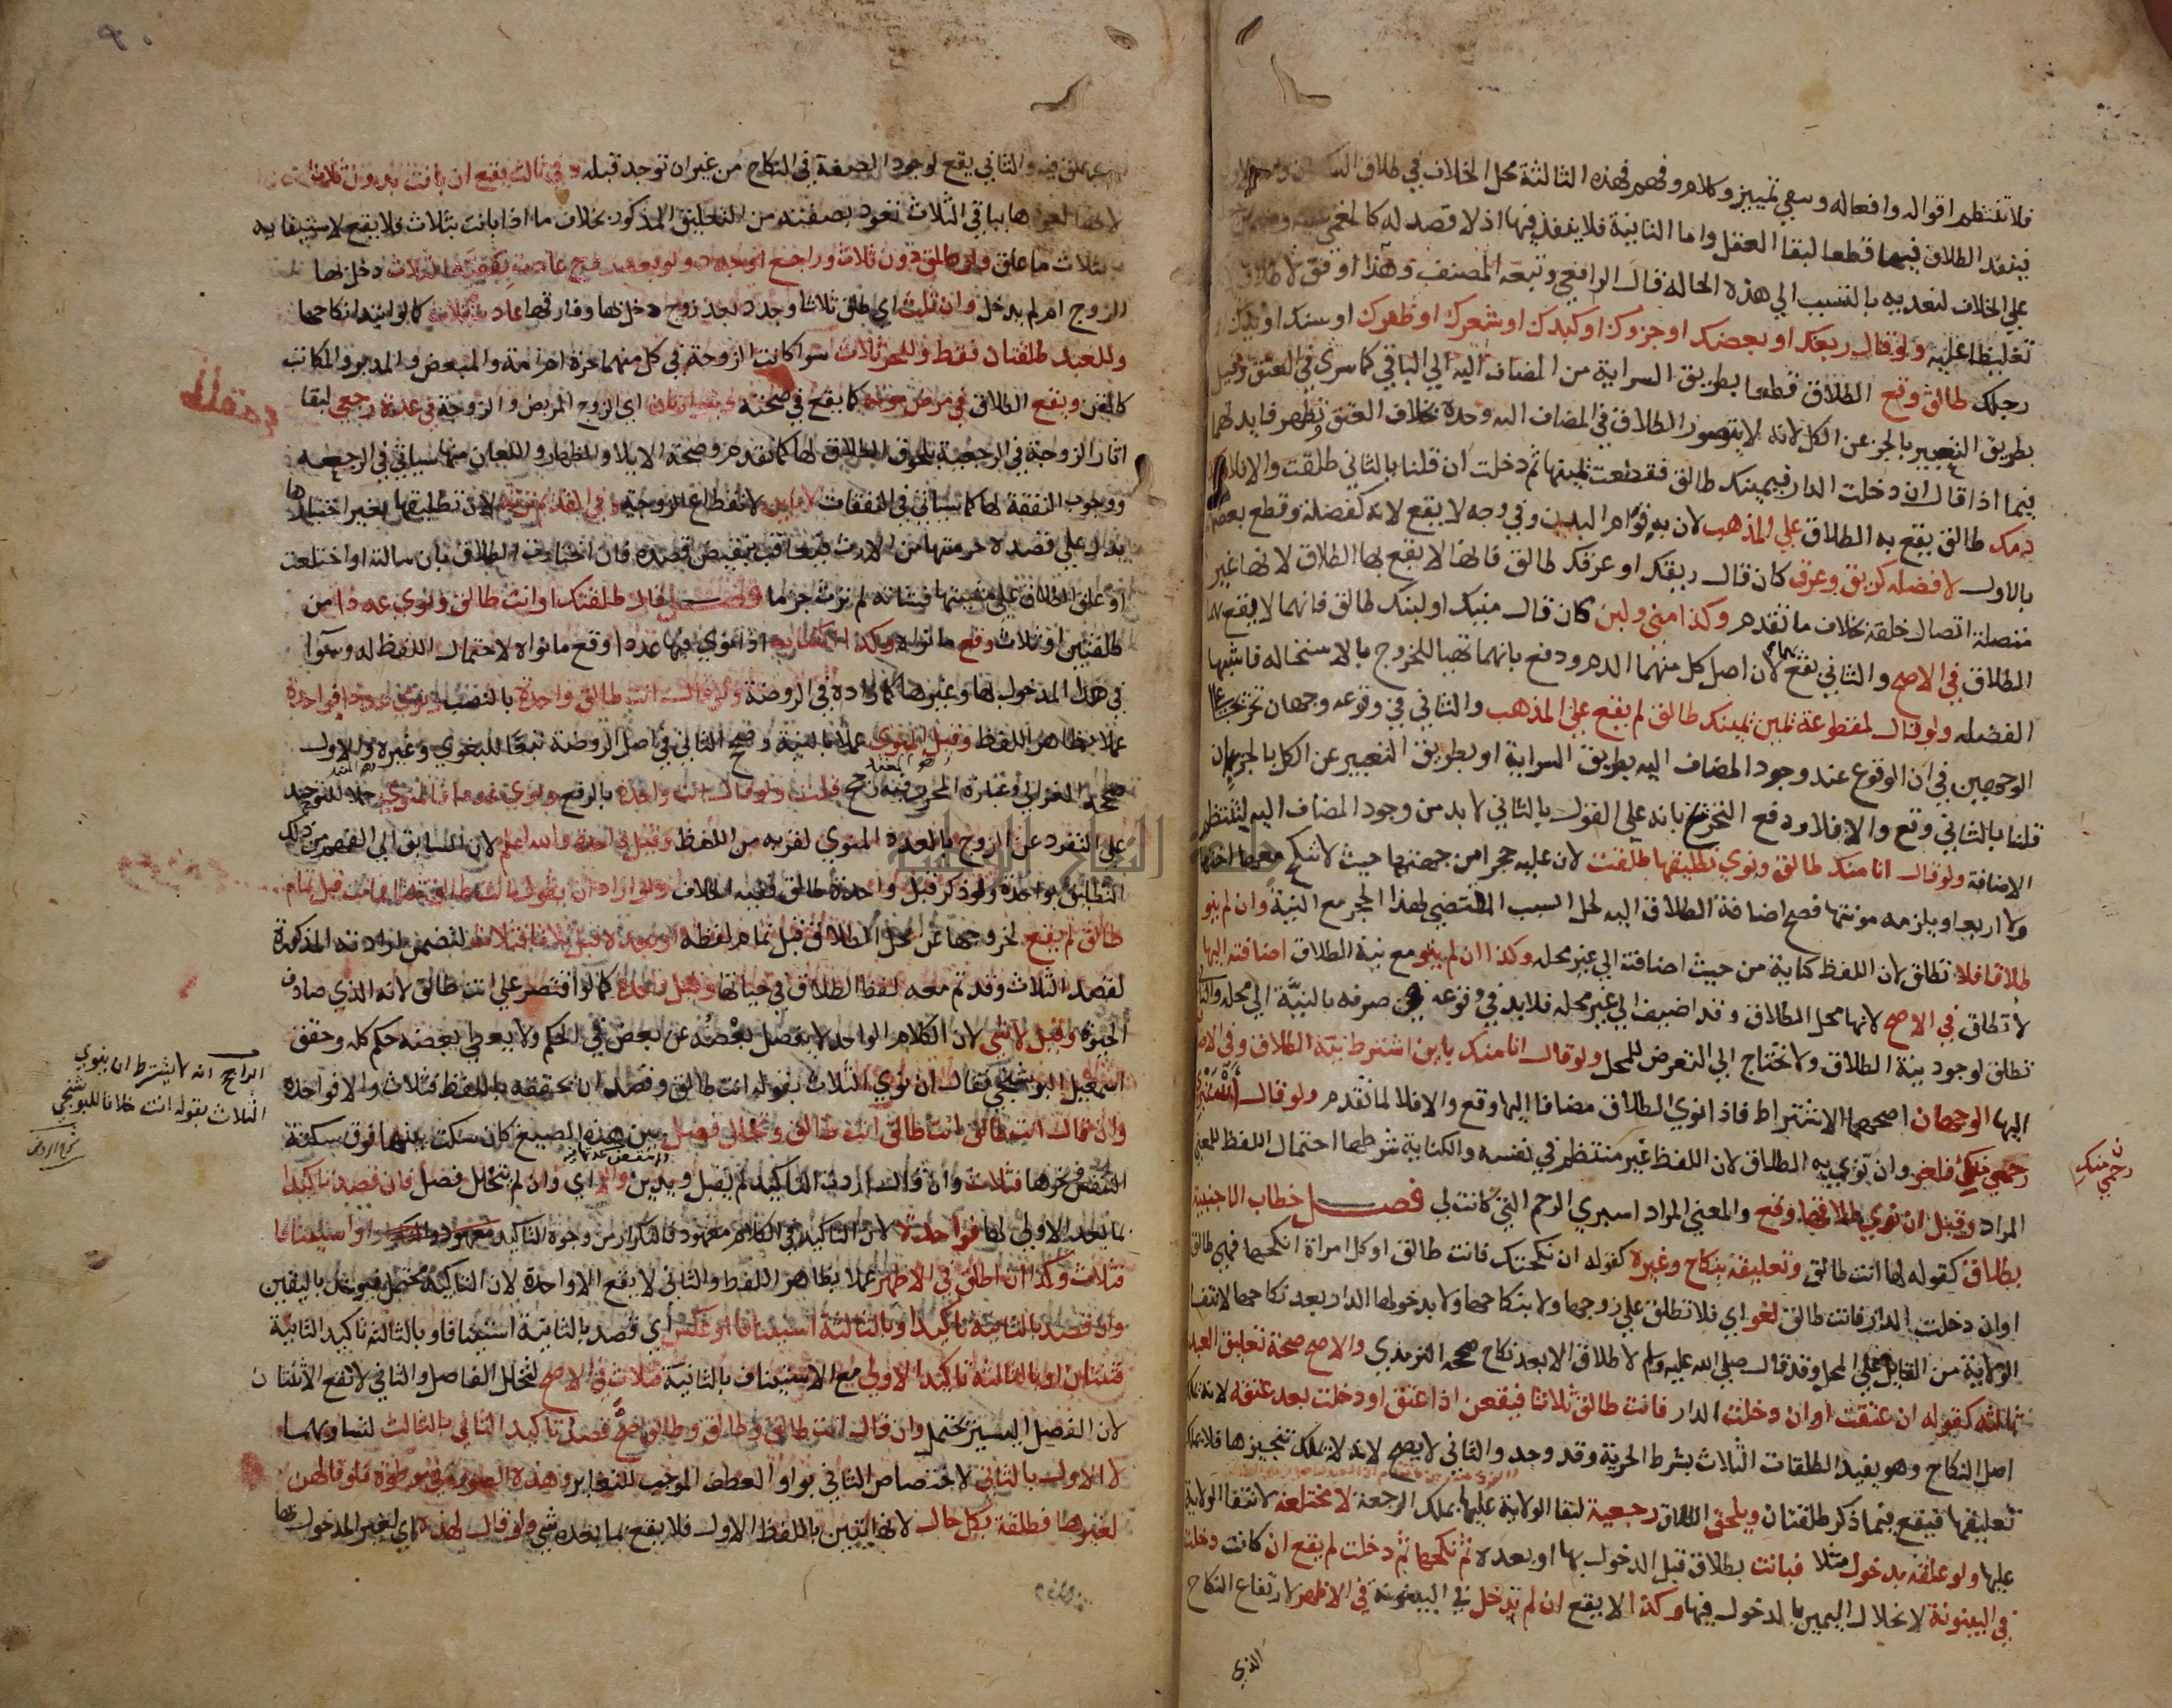 فلا تنتظم اقواله وافعاله وبقي تمييز وكلام وفهم فهذه الثالثة محل الخلاف في طلاق
فينفذ الطلاق فيها قطعا لبقا العقل واما الثانية فلا ينفذ فيها اذ لا قصد له كالمغمى عليه
على الخلاف لتعديه بالتسبب الي هذه الحاله قال الرافعي وتبعه المصنف وهذا اوفق لاطلاق
تغليظا عليه ولو قال ربعك او بعضك او جزوك او كبدك او شعرك او ظفرك او سنك او يدك او
رجلك طالق وقع الطلاق قطعا بطريق السراية من المضاف اليه الي الباقي كما سري في العتق وقيل
بطريق التعبير بالجز عن الكل لانه لا يتصور الطلاق في المضاف اليه وحده بخلاف العتق وتظهر فايدتهما
فيما اذا قال ان دخلت الدار فيمينك طالق فقطعت يمينها ثم دخلت ان قلنا بالثاني طلقت والا فلا
دمك طالق يقع به الطلاق علي المذهب لان به قوام البدن وفي وجه لا يقع لانه كفضله وقطع بعضهم
بالاول لا فضله كريق وعرق كان قال ريقك او عرقك طالق فانها لا يقع بها الطلاق لانها غير
متصلة اتصال خلقه بخلاف ما تقدم وكذا مني ولبن كان قال منيك او لبنك طالق فانهما لا يقع بهما
الطلاق في الاصح والثاني يقع بهما لان اصل كل منهما الدم ودفع بانهما تهيا للخروج بالاستحاله فاشبها
الفضله ولو قال لمقطوعة يمين يمينك طالق لم يقع علي المذهب والثاني في وقوعه وجهان تخريجا علي
الوجهين في ان الوقوع عند وجود المضاف اليه بطريق السراية او بطريق التعبير عن الكل بالجز فان
قلنا بالثاني وقع والا فلا ودفع التخريج بانه علي القول بالثاني لا بد من وجود المضاف اليه لتنتظم
الاضافة ولو قال انا منك طالق ونوي تطليقها طلقت لان عليه حجرا من جهتها حيث لا ينكح معها اختها
ولا اربعا ويلزمه مونتها فصح اضافة الطلاق اليه لحل السبب المقتضي لهذا الحجر مع النية وان لم ينو
طلاقا فلا تطلق لان اللفظ كناية من حيث اضافته الي غير محله وكذا ان لم ينو مع نية الطلاق اضافته اليها
لا تطلق في الاصح لانها محل الطلاق وقد اضيف الي غير محله فلا بد في وقوعه من صرفه بالنية الي محله والثاني
تطلق لوجود نية الطلاق ولا تحتاج الي التعرض للمحل ولو قال انا منك باين اشترط نية الطلاق وفي الاضافة
اليها الوجهان اصحهما الاشتراط فاذا نوي الطلاق مضافا اليها وقع والا فلا لما تقدم ولو قال استبري
رحمي منك فلغو وان نوي به الطلاق لان اللفظ غير منتظم في نفسه والكناية شرطها احتمال اللفظ للمعني
المراد وقيل ان نوي طلاقها وقع والمعني المراد استبري الرحم التي كانت لي فصل خطاب الاجنبية
بطلاق كقوله لها انت طالق وتعليقه بنكاح وغيره كقوله ان نكحتك فانت طالق او كل امراة انكحها فهي طالق
او ان دخلت الدار فانت طالق لغو اي فلا تطلق علي زوجها ولا بنكاحها ولا بدخولها الدار بعد نكاحها لانتفا
الولاية من القايل علي المحل وقد قال صلي الله عليه وسلم لا طلاق الا بعد نكاح صححه الترمذي والاصح صحة تعليق العبد
ثالثه كقوله ان عتقت او ان دخلت الدار فانت طالق ثلاثا فيقعن اذا عتق او دخلت بعد عتقه لانه ملك
اصل النكاح وهو يفيد الطلقات الثلاث بشرط الحرية وقد وجد والثاني لا يصح لانه لا يملك تنجيزها فلا يملك
تعليقها فيقع فيما ذكر طلقتان ويلحق الطلاق رجعية لبقا الولاية عليها بملك الرجعة لا مختلعة لانتفا الولاية
عليها ولو علقه بدخول مثلا فبانت بطلاق قبل الدخول بها او بعده ثم نكحها ثم دخلت لم يقع ان كانت دخلت
في البينونة لانحلال اليمين بالدخول فيها وكذا لا يقع ان لم تدخل في البينونة في الاظهر لارتفاع النكاح
الذي
رحمي منك
علق فيه والثاني يقع لوجود الصفة في النكاح من غير ان توجد قبله وفي ثالث يقع ان بانت بدون ثلاث
بباقي الثلاث فتعود بصفته من التعليق المذكور بخلاف ما اذا بانت بثلاث فلا يقع لاستيفايه
بالثلاث ما علق ولو طلق دون ثلاث وراجع او جدد ولو بعد زوج عادت ببقية الثلاث دخل بها
الزوج ام لم يدخل وان ثلث اي طلق ثلاثا وجدد بعد زوج دخل بها وفارقها عادت بثلاث كما لو ابتدا نكاحها
وللعبد طلقتان فقط وللحر ثلاث سوا كانت الزوجة في كل منهما حرة او امة والمبعض والمدبر والمكاتب
كالقن ويقع الطلاق في مرض موته كما يقع في صحته ويتوارثان اي الزوج المريض والزوجة في عدة رجعي لبقا
اثار الزوجة في الرجعية بلحوق الطلاق لها كما تقدم وصحة الايلا والظهار واللعان منها كما سياتي في الرجعه
ووجوب النفقة لها كما سياتي في النفقات لا باين لانقطاع الزوجية وفي القديم ترثه لان تطليقها بغير اختيارها
يدل علي قصده حرمانها من الارث فيعاقب بنقيض قصده فان اختارت الطلاق بان سالته او اختلعت
او علق الطلاق علي مشيتها فشاته لم ترث جزما فصل قال طلقتك او انت طالق ونوي عددا من
طلقتين او ثلاث وقع ما نواه وكذا الكناية اذا نوي فيها عددا وقع ما نواه لاحتمال اللفظ له وسوا
في هذا المدخول بها وغيرها كما زاده في الروضة ولو قال انت طالق واحدة بالنصب ونوي عددا فواحدة
عملا بظاهر اللفظ وقيل المنوي عملا بالنية وصحح الثاني في اصل الروضة تبعا للبغوي وغيره والاول
صححه الغزالي وعبارة المحرر فيه رجح قلت ولو قال انت واحدة بالرفع ونوي عددا فالمنوي حملا للتوحيد
علي التفرد عن الزوج بالعدد المنوي لقربه من اللفظ وقيل واحدة والله اعلم لان السابق الي الفهم من ذلك
التطليق بواحدة ولو ذكر قبل واحدة طالق ففيه الخلاف ولو اراد ان يقول انت طالق ثلاثا فماتت قبل تمام
طالق لم يقع لخروجها عن محل الطلاق قبل تمام لفظه او بعده قبل ثلاثا فثلاث لتضمن ارادته المذكورة
لقصد الثلاث وقد تم معه لفظ الطلاق في حياتها وقيل واحدة كما لو اقتصر علي انت طالق لانه الذي صادف
الحيوة وقيل لا شي لان الكلام الواحد لا يفصل بعضه عن بعض في الحكم ولا يعطي بعضه حكم كله وحقق
اسمعيل البوشنجي فقال ان نوي الثلاث بقوله انت طالق وقصد ان يحققه باللفظ فثلاث والا فواحدة
وان قال انت طالق انت طالق انت طالق وتخلل فصل بين هذه الصيغ كان سكت بينها فوق سكتة
التنفس ونحوها فثلاث وان قال اردت التاكيد لم يقبل ويدين والا اي وان لم يتخلل فصل فان قصد تاكيدا
بما بعد الاولي لها فواحدة لان التاكيد في الكلام معهود فالتكرار من وجوه التاكيد او استينافا
فثلاث وكذا ان اطلق في الاظهر عملا بظاهر اللفظ والثاني لا يقع الا واحدة لان التاكيد محتمل فيوخذ باليقين
وان قصد بالثانية تاكيدا وبالثالثة استينافا او عكس اي قصد بالثانية استينافا وبالثالثه تاكيد الثانية
فثنتان او بالثالثة تاكيد الاولي مع الاستيناف بالثانية فثلاث في الاصح لتخلل الفاصل والثاني لا تقع الا ثنتان
لان الفصل اليسير يحتمل وان قال انت طالق وطالق وطالق صح قصد تاكيد الثاني بالثالث لتساويهما
لا الاول بالثاني لاختصاص الثاني بواو العطف الموجب للتغاير وهذه الصور في موطوة فلو قالهن
لغيرها فطلقة بكل حال لانها تبين باللفظ الاول فلا يقع بما بعده شي ولو قال لهذه اي لغير المدخول بها
الراجح انه لا يشترط ان ينوي
الثلاث بقوله انت خلافا للبوشنجي